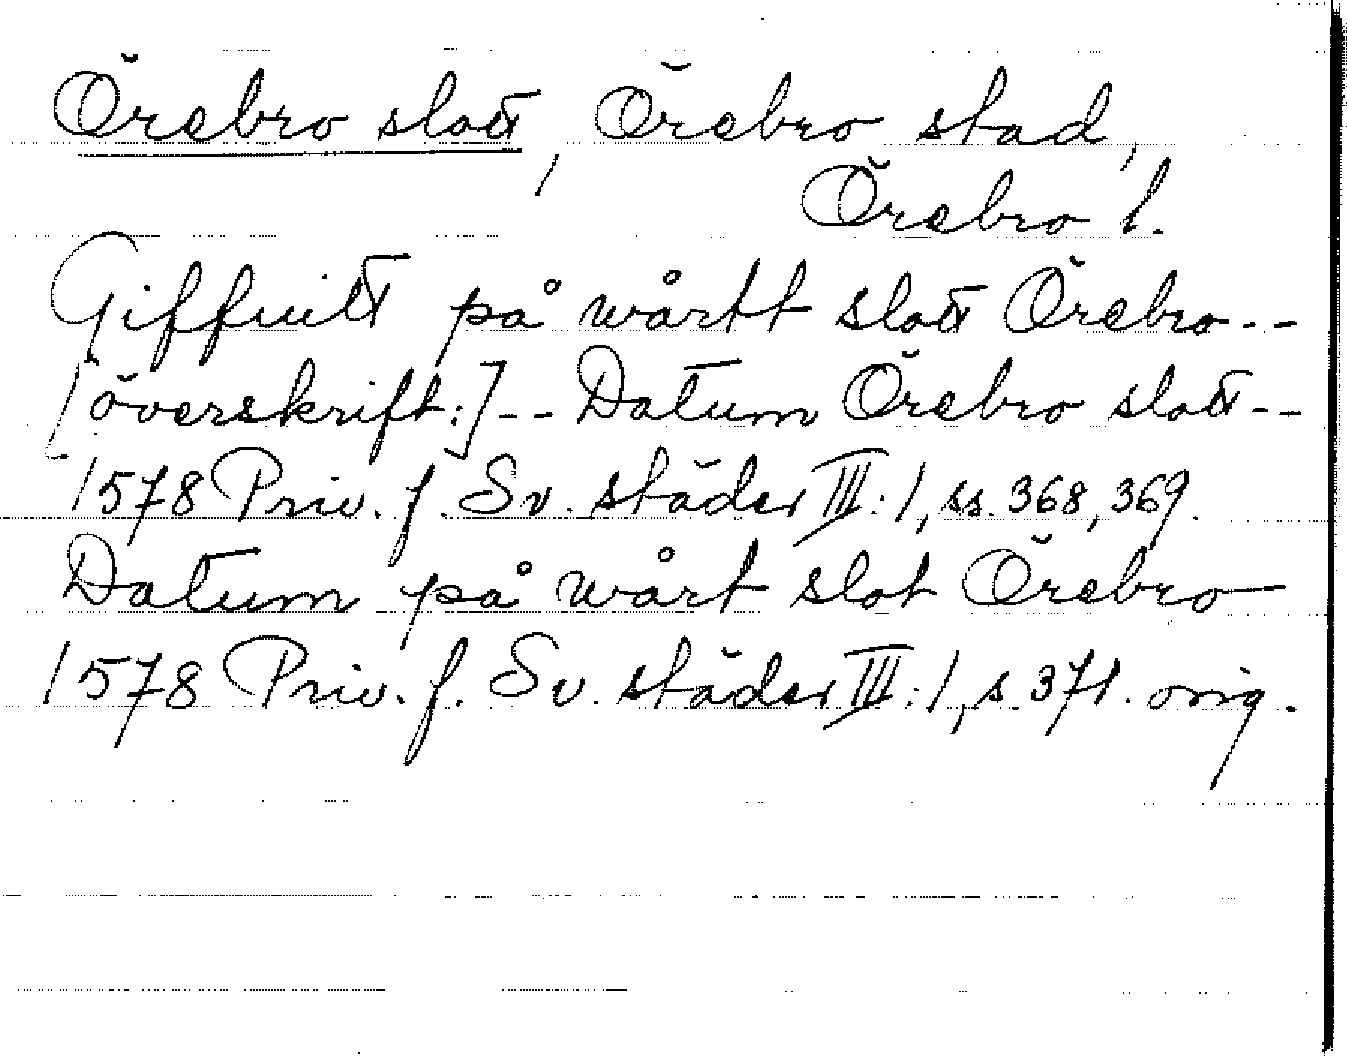 Örebro slott, Örebro stad,
Örebro l.
Giffuitt på wårtt slott Örebro--
[överskrift:]-- Datum Örebro slott--
1578 Priv. f. Sv. städer III:1, ss. 368, 369.
Datum på wårt slot Örebro
1578 Priv. f. Sv. städer III:1, s. 371. orig.